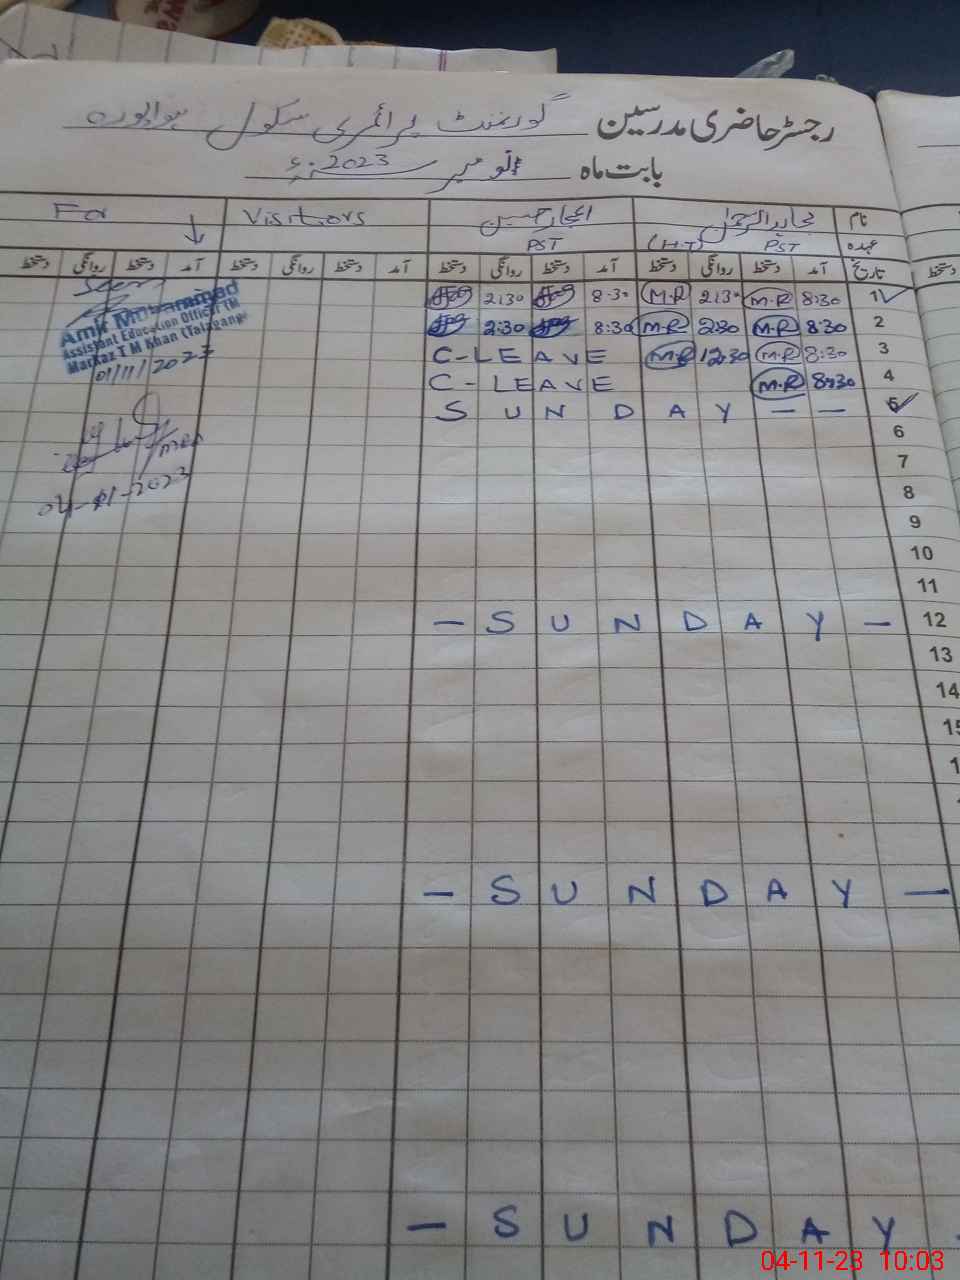 رجسٹر حاضری مدرسین گورنمنٹ پرائمری سکول
بابت ماہ نومبر 2023ء
نام مجاہد الرحمٰن اعجاز حسین Visitors For
عہدہ PST (H.T) PST
تاریخ آمد دستخط روانگی دستخط آمد دستخط روانگی دستخط آمد دستخط روانگی دستخط آمد دستخط روانگی دستخط
دستخط
1 8:30 M.R 2:30 M.R 8:30 2:30
2 8:30 M.R 2:30 M.R 8:30 2:30
3 8:30 M.R 12:30 M.R C-LEAVE
4 8:30 M.R C-LEAVE
5 SUNDAY - -
Seen
Amir Muhammad
Assistant Education Officer TM
Markaz T M Khan (Talagang)
01/11/2023
04-11-2023
6
7
8
9
10
11
12 - SUNDAY -
13
14
- SUNDAY -
- SUNDAY
04-11-23 10:03